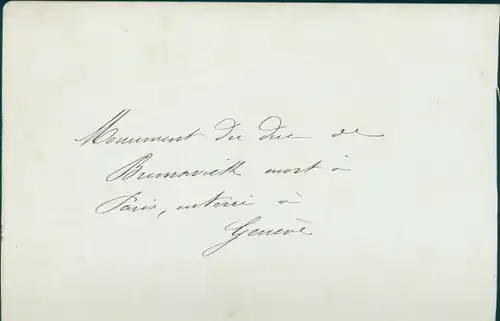 Monument du duc de
Brunswick mort à
Paris, enterré à
Genève